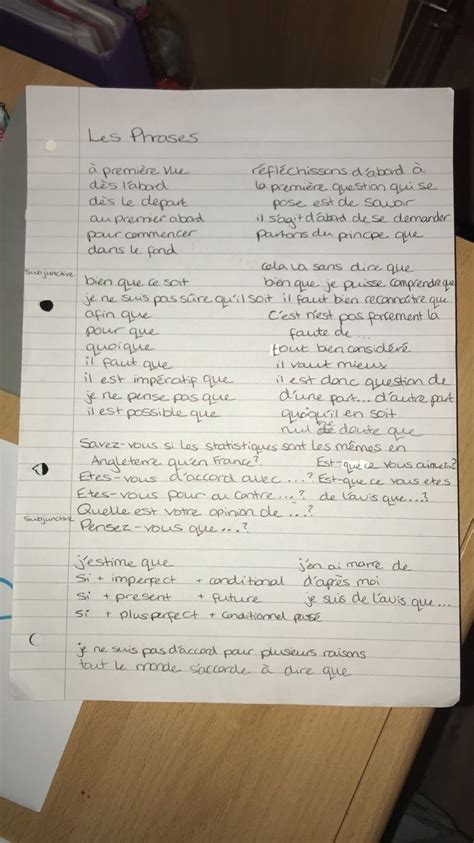 Les Phrases
à première vue
dès l'abord
dès le depart
au premier abord
pour commencer
dans le fond
réfléchissons d'abord à
la première question qui se
pose est de savoir
il s'agit d'abord de se demander
partons du principe que
cela va sans dire que
Subjunctive
bien que ce soit
je ne suis pas sûre qu'il soit
afin que
pour que
quoique
il faut que
il est impératif que
je ne pense pas que
il est possible que
bien que je puisse comprendre que
il faut bien reconnaître que
C'est n'est pas forcement la
faute de...
tout bien considéré
il vaut mieux
il est donc question de
d'une part... d'autre part
quoiqu'il en soit
nul ne doute que
Savez-vous si les statistiques sont les mêmes en
Angleterre qu'en France?
Est-que ce vous aimez...?
Etes-vous d'accord avec ...?
Est-que ce vous etes
Etes-vous pour ou contre ...?
de l'avis que...?
Quelle est votre opinion de ...?
Subjunctive
Pensez-vous que...?
j'estime que
si + imperfect + conditional
si + present + future
si + plusperfect + conditionnel passé
j'en ai marre de
d'après moi
je suis de l'avis que...
je ne suis pas d'accord pour plusieurs raisons
tout le monde s'accorde à dire que